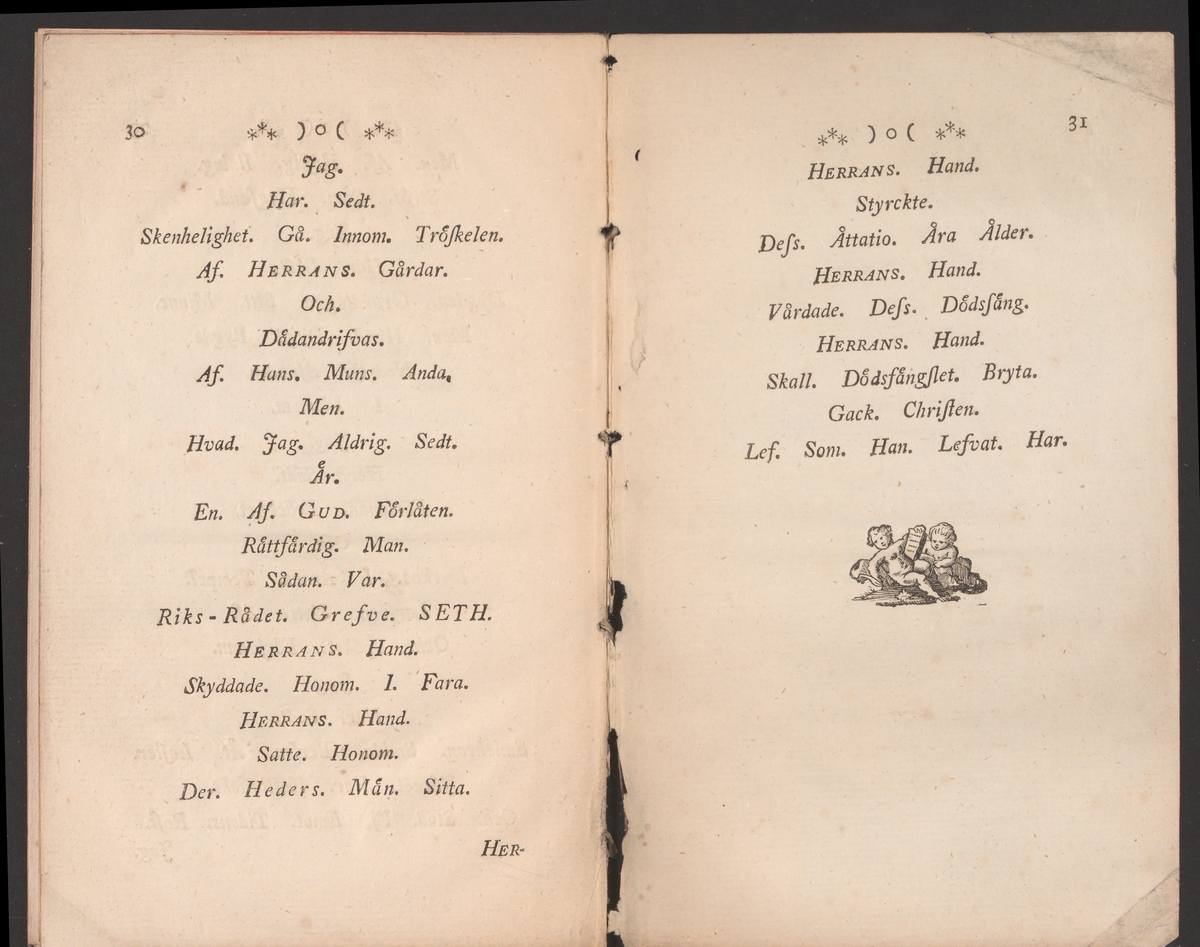 30
⁂ ) o ( ⁂
Jag.
Har. Sedt.
Skenhelighet. Gå. Innom. Troͤſkelen.
Af. HERRANS. Gårdar.
Och.
Daͤdandrifvas.
Af. Hans. Muns. Anda.
Men.
Hvad. Jag. Aldrig. Sedt.
Aͤr.
En. Af. GUD. Foͤrlåten.
Raͤttfaͤrdig. Man.
Sådan. Var.
Riks-Rådet. Grefve. SETH.
HERRANS. Hand.
Skyddade. Honom. I. Fara.
HERRANS. Hand.
Satte. Honom.
Der. Heders. Maͤn. Sitta.
HER-
31
⁂ ) o ( ⁂
HERRANS. Hand.
Styrckte.
Deſs. Åttatio. Åra Ålder.
HERRANS. Hand.
Vårdade. Deſs. Doͤdsſaͤng.
HERRANS. Hand.
Skall. Doͤdsfaͤngſlet. Bryta.
Gack. Chriſten.
Lef. Som. Han. Lefvat. Har.